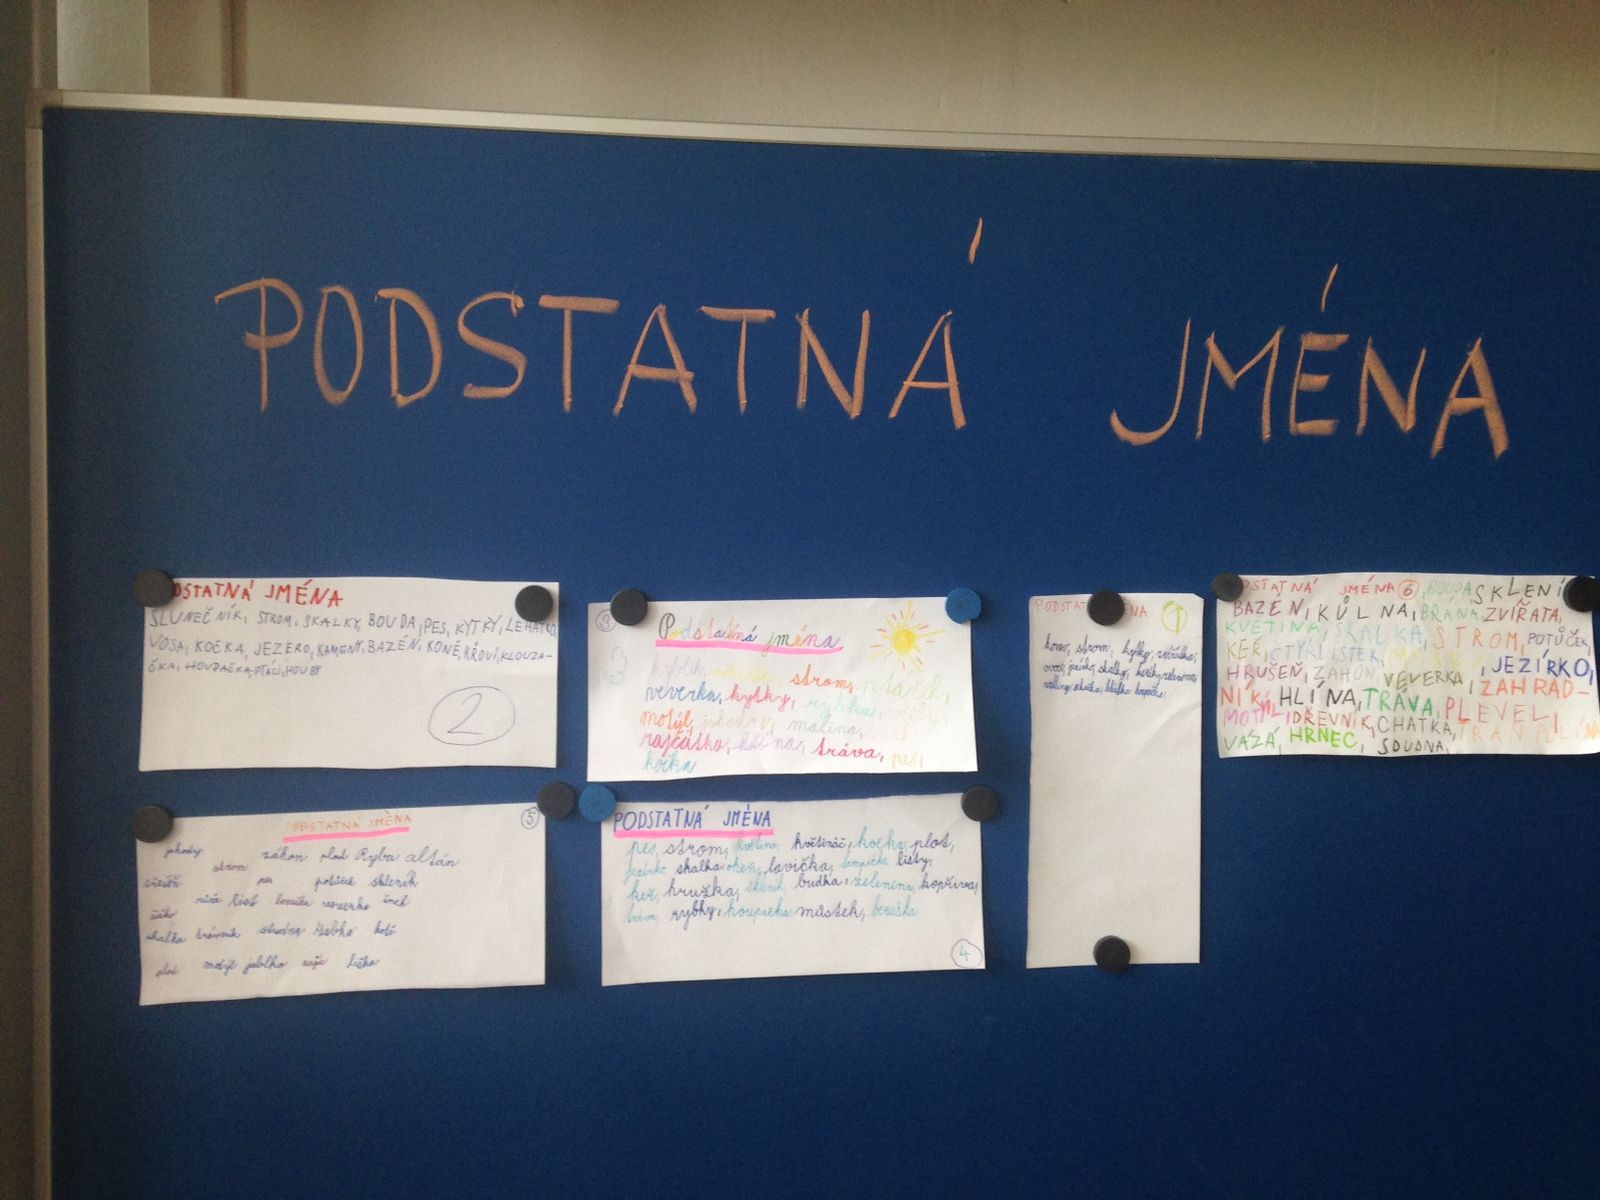 PODSTATNÁ JMÉNA
DSTATNÁ JMÉNA
SLUNEČNÍK, STROM, SKALKY, BOUDA, PES, KYTKY, LEHÁTKO,
VOSA, KOČKA, JEZERO, KAMENY, BAZÉN, KONĚ, KŘOVÍ, KLOUZA-
ČKA, HOUPAČKA, PTÁCI, HOUBY
2
3
Podstatná jména
strom, ptáček,
veverka, kytky, rybka, včely,
motýl, jahody, malina,
rajčátko, hlína, tráva, pes,
kočka
PODSTAT NA 1
strom, kytky,
ovoce, jezírko, skalky, zelenina,
STATNÁ JMÉNA 6, BOUDA SKLENÍ
BAZÉN, KŮLNA, BRÁNA, ZVÍŘATA,
KVĚTINA, SKALKA, STROM, POTŮČEK,
KEŘ, ČTYŘLÍSTEK, JEZÍRKO,
HRUŠEŇ, ZÁHON, VEVERKA, ZAHRAD-
NÍK, HLÍNA, TRÁVA, PLEVEL,
MOTÝL, DŘEVNÍK, CHATKA, TRAMPOLÍNA
VÁZA, HRNEC, SOUDNA,
5
PODSTATNÁ JMÉNA
jahody strom záhon plod Ryba altán
pes potůček skleník
růže list beruška veverka
skalka trávník studna kotě
plot motýl jablko liška
PODSTATNÁ JMÉNA
pes, strom, květina, květináč, kočky, plot,
jezírko, skalka, oheň, lavička, lampička, listy,
keř, hruška, skleník, budka, zelenina, kopřiva,
tráva, rybky, houpačka, můstek, beruška
4